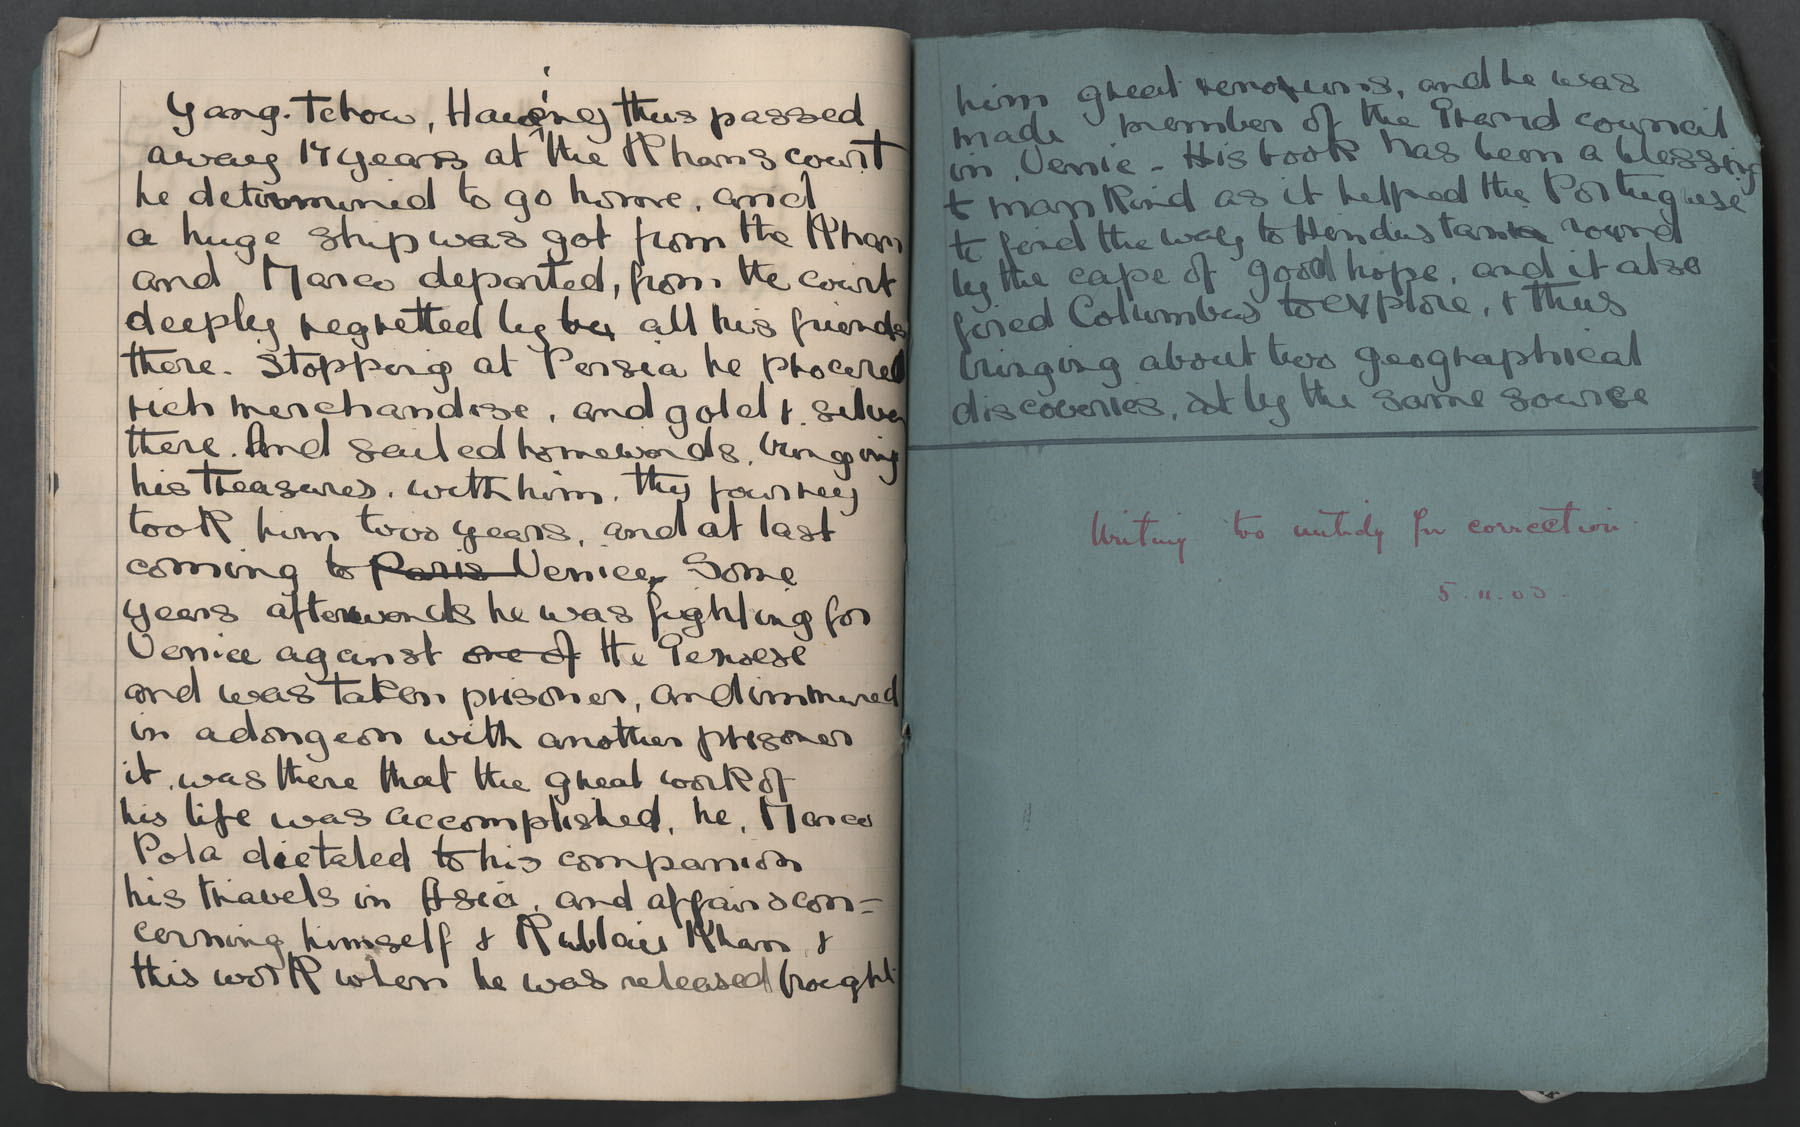 Yang-Tchow, Having thus passed
away 17 years at the Khans court
he determined to go home, and
a huge ship was got from the Khan
and Marco departed, from the court
deeply regretted by all his friends
there. Stopping at Persia he procered
rich merchandise, and gold & silver
there. And sailed homewords, bringing
his treasures. with him. This journey
took him two years, and at last
coming to Paris Venice, Some
years afterwards he was fighting for
Venice against one of the Genoese
and was taken prisoner, and immured
in a dongeon with another prisoner
it was there that the great work of
his life was accomplished, he, Marco
Pola dictated to his companion
his travels in Asia, and affairs con=
cerning himself & Kublai Khan &
this work when he was released brought
him great renowns, and he was
made member of the Grand council
in Venie - His book has been a blessing
to mankind as it helped the Portuguese
to find the way to Hindustan round
by the cape of good hope, and it also
fired Columbus to explore, & thus
bringing about two geographical
discoveries, at by the same source
Writing too untidy for correction
5.11.03.